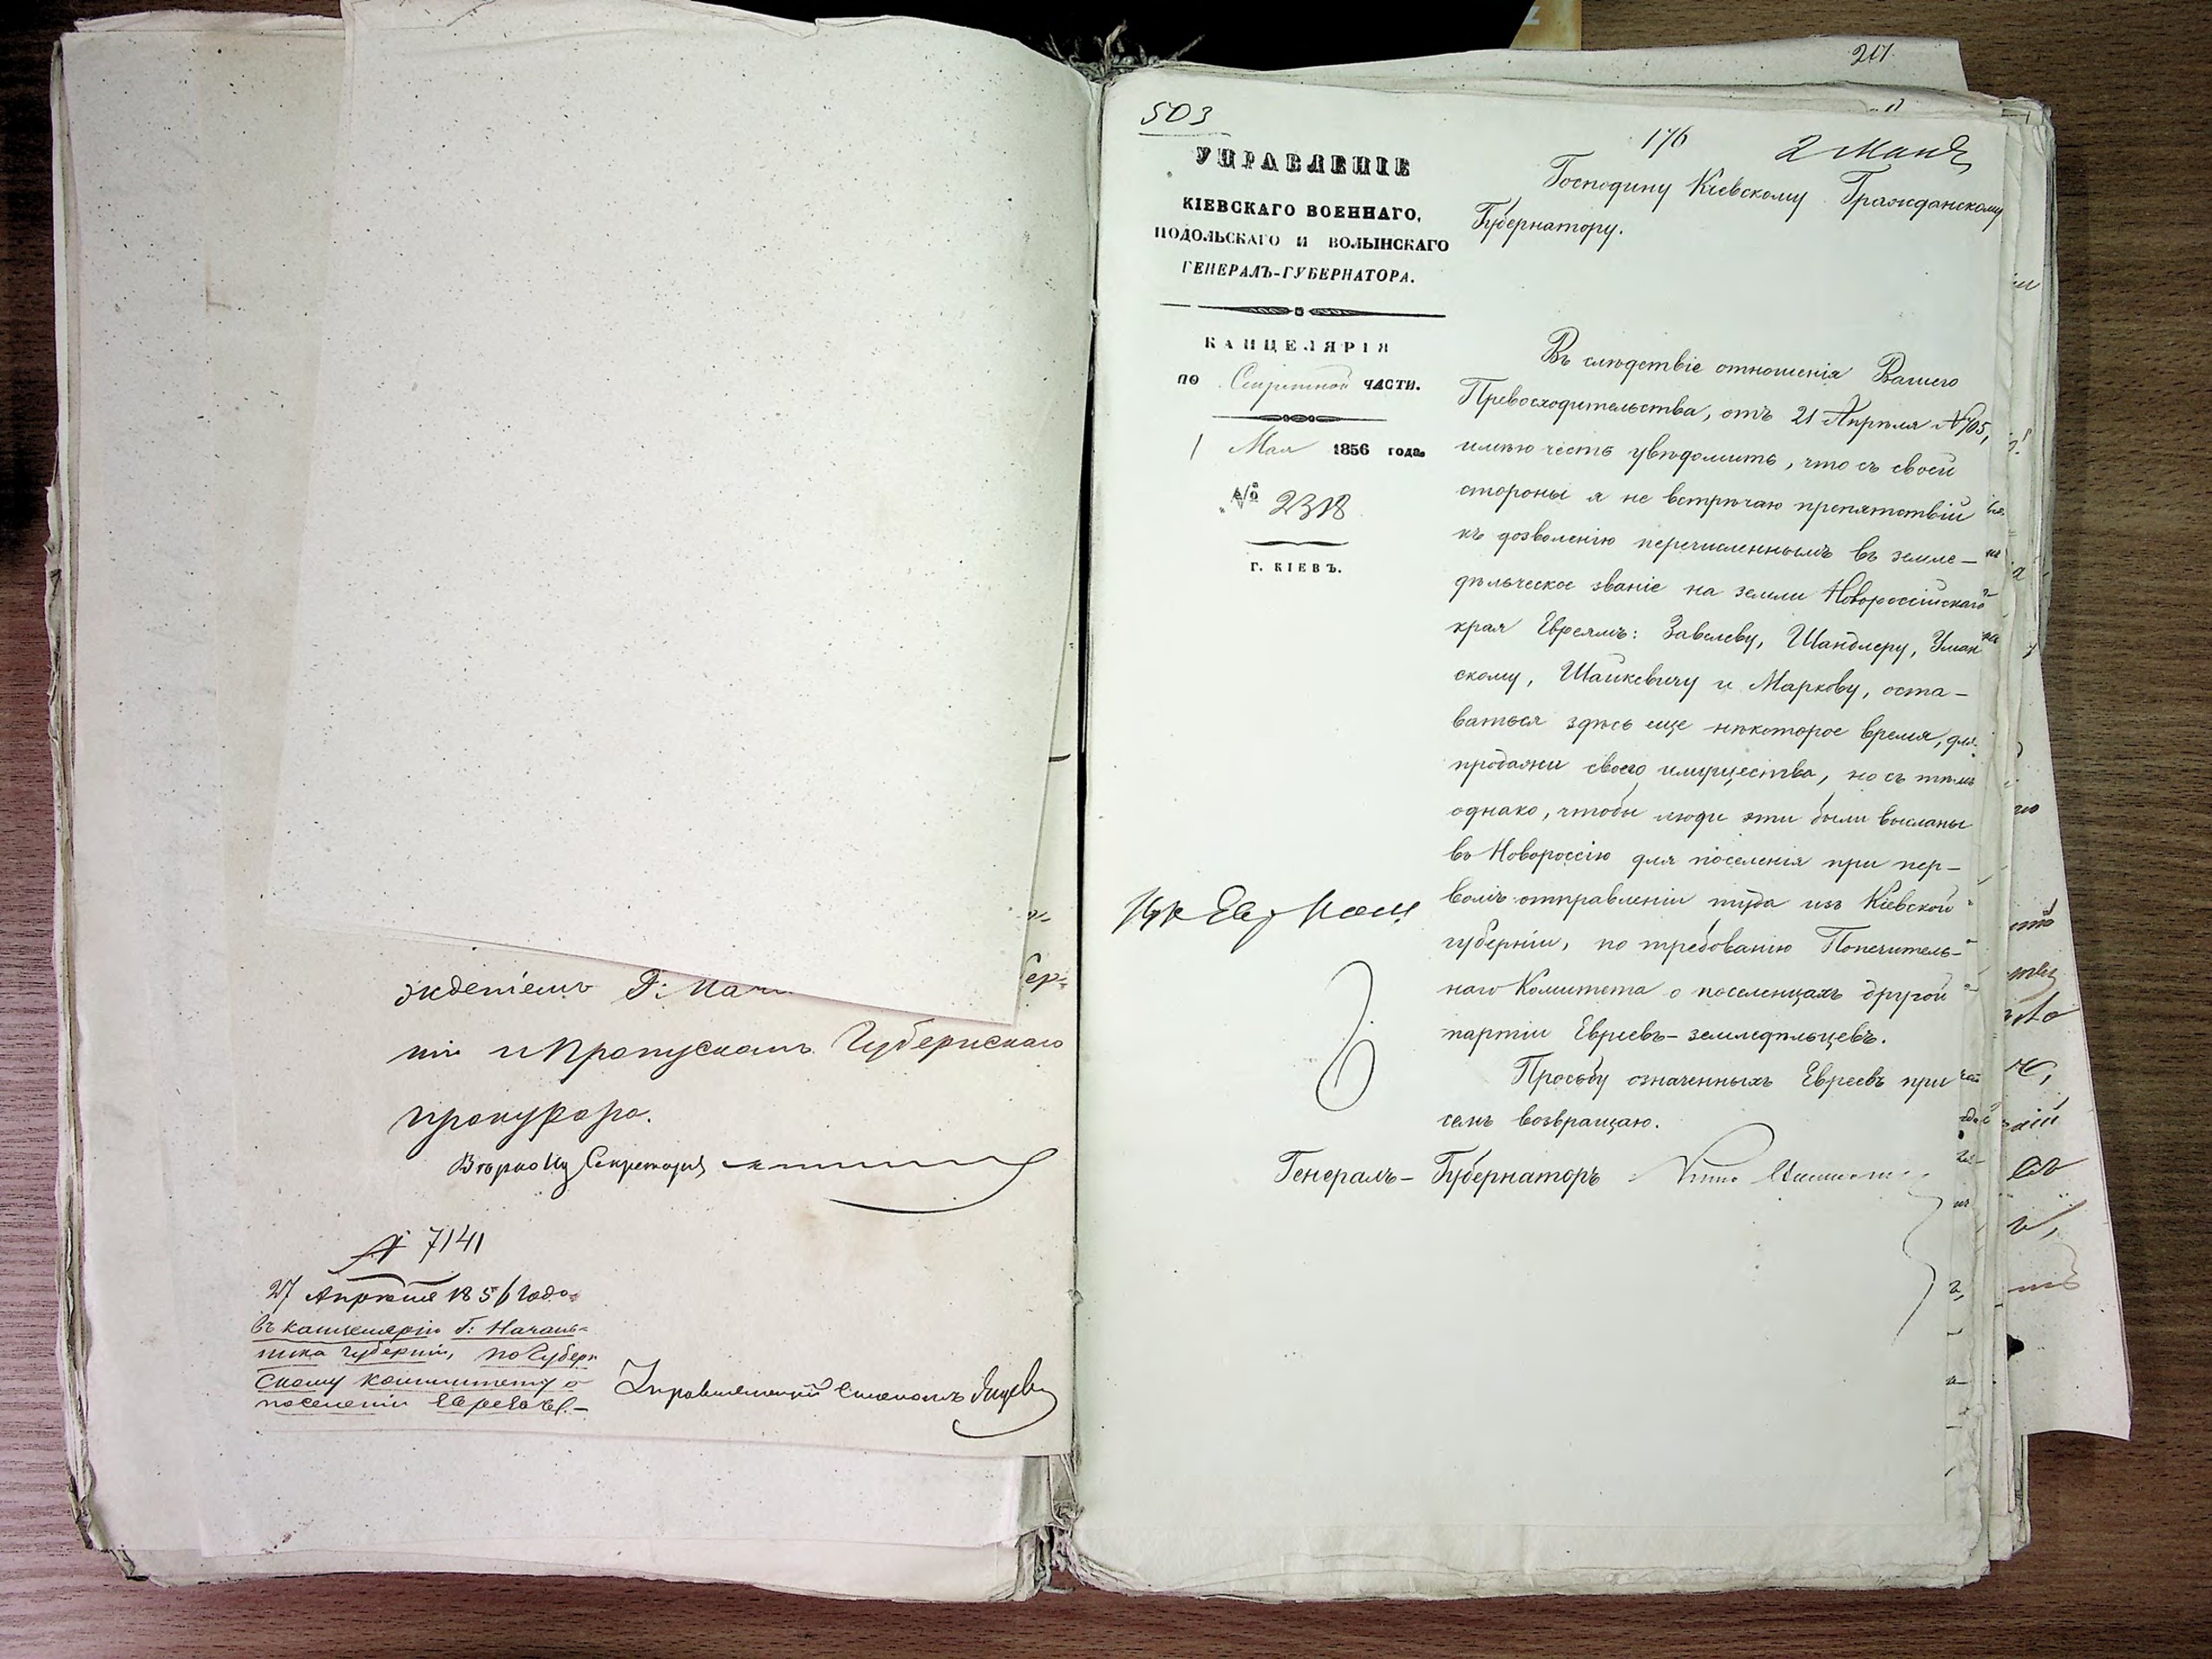 жденіемъ Г: Нача
тіи и Пропускомъ Губернскаго
прокурора.
Секретарь
№ 7141
27 Апрѣля 1856 года.
въ канцелярію Г: Началь-
ника губерніи, по Губерн
скому комитету о
поселеніи Евреевъ.-
Управляющій
217
503
176
2 Мая
УПРАВЛЕНІЕ
КІЕВСКАГО ВОЕННАГО,
ПОДОЛЬСКАГО И ВОЛЫНСКАГО
ГЕНЕРАЛЪ-ГУБЕРНАТОРА.
КАНЦЕЛЯРІЯ
ПО Секретной ЧАСТИ.
1 Мая 1856 года.
№ 2318
Г. КІЕВЪ.
Господину Кіевскому Гражданскому
Губернатору.
Въ слѣдствіе отношенія Вашего
Превосходительства, отъ 21 Апрѣля № 705,
имѣю честь увѣдомить, что съ своей
стороны я не встрѣчаю препятствій
къ дозволенію перечисленнымъ въ земле-
дѣльческое званіе на земли Новороссійскаго
края Евреямъ: Завелеву, Шандлеру, Уман
скому, Шайкевичу и Маркову, оста-
ваться здѣсь еще нѣкоторое время, для
продажи своего имущества, но съ тѣмъ
однако, чтобы люди эти были высланы
въ Новороссію для поселенія при пер-
вомъ отправленіи туда изъ Кіевской
губерніи, по требованію Попечитель-
наго Комитета о поселенцахъ другой
партіи Евреевъ-земледѣльцевъ.
Просьбу означенныхъ Евреевъ при
семъ возвращаю.
Генералъ-Губернаторъ